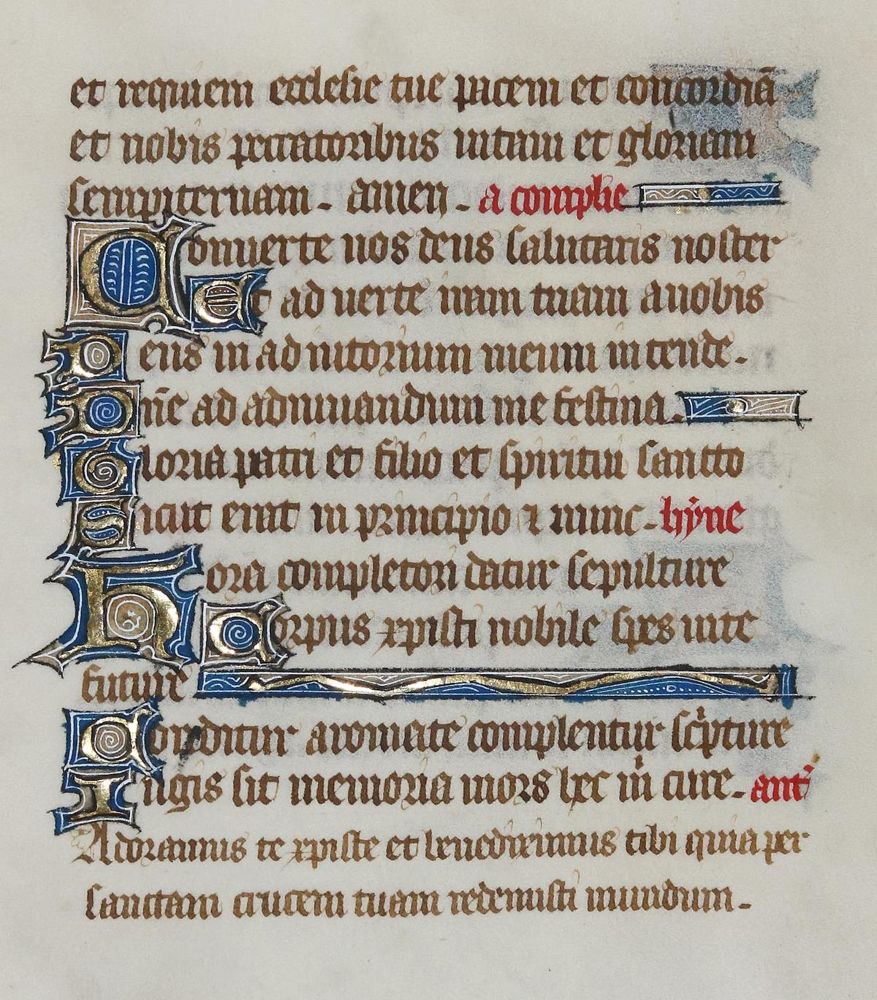 et requiem ecclesie tue pacem et concordiā
et nobis peccatoribus uitam et gloriam
sempiternam. amen. a complie
Conuerte nos deus salutaris noster
Et ad uerte iram tuam a nobis
Deus in ad iutorium meum intende.
Dn̄e ad adiuuandum me festina.
Gloria patri et filio et spiritui sancto
Sicut erat in principio ⁊ nunc. hȳne
Hora completorii datur sepulture
Corpus xpisti nobile spes uite
future
Conditur aromate complentur scͥpture
Iugis sit memoria mors hec mͥ cure. antͥ
Adoramus te xpiste et benedicimus tibi quia per
sanctam crucem tuam redemisti mundum.